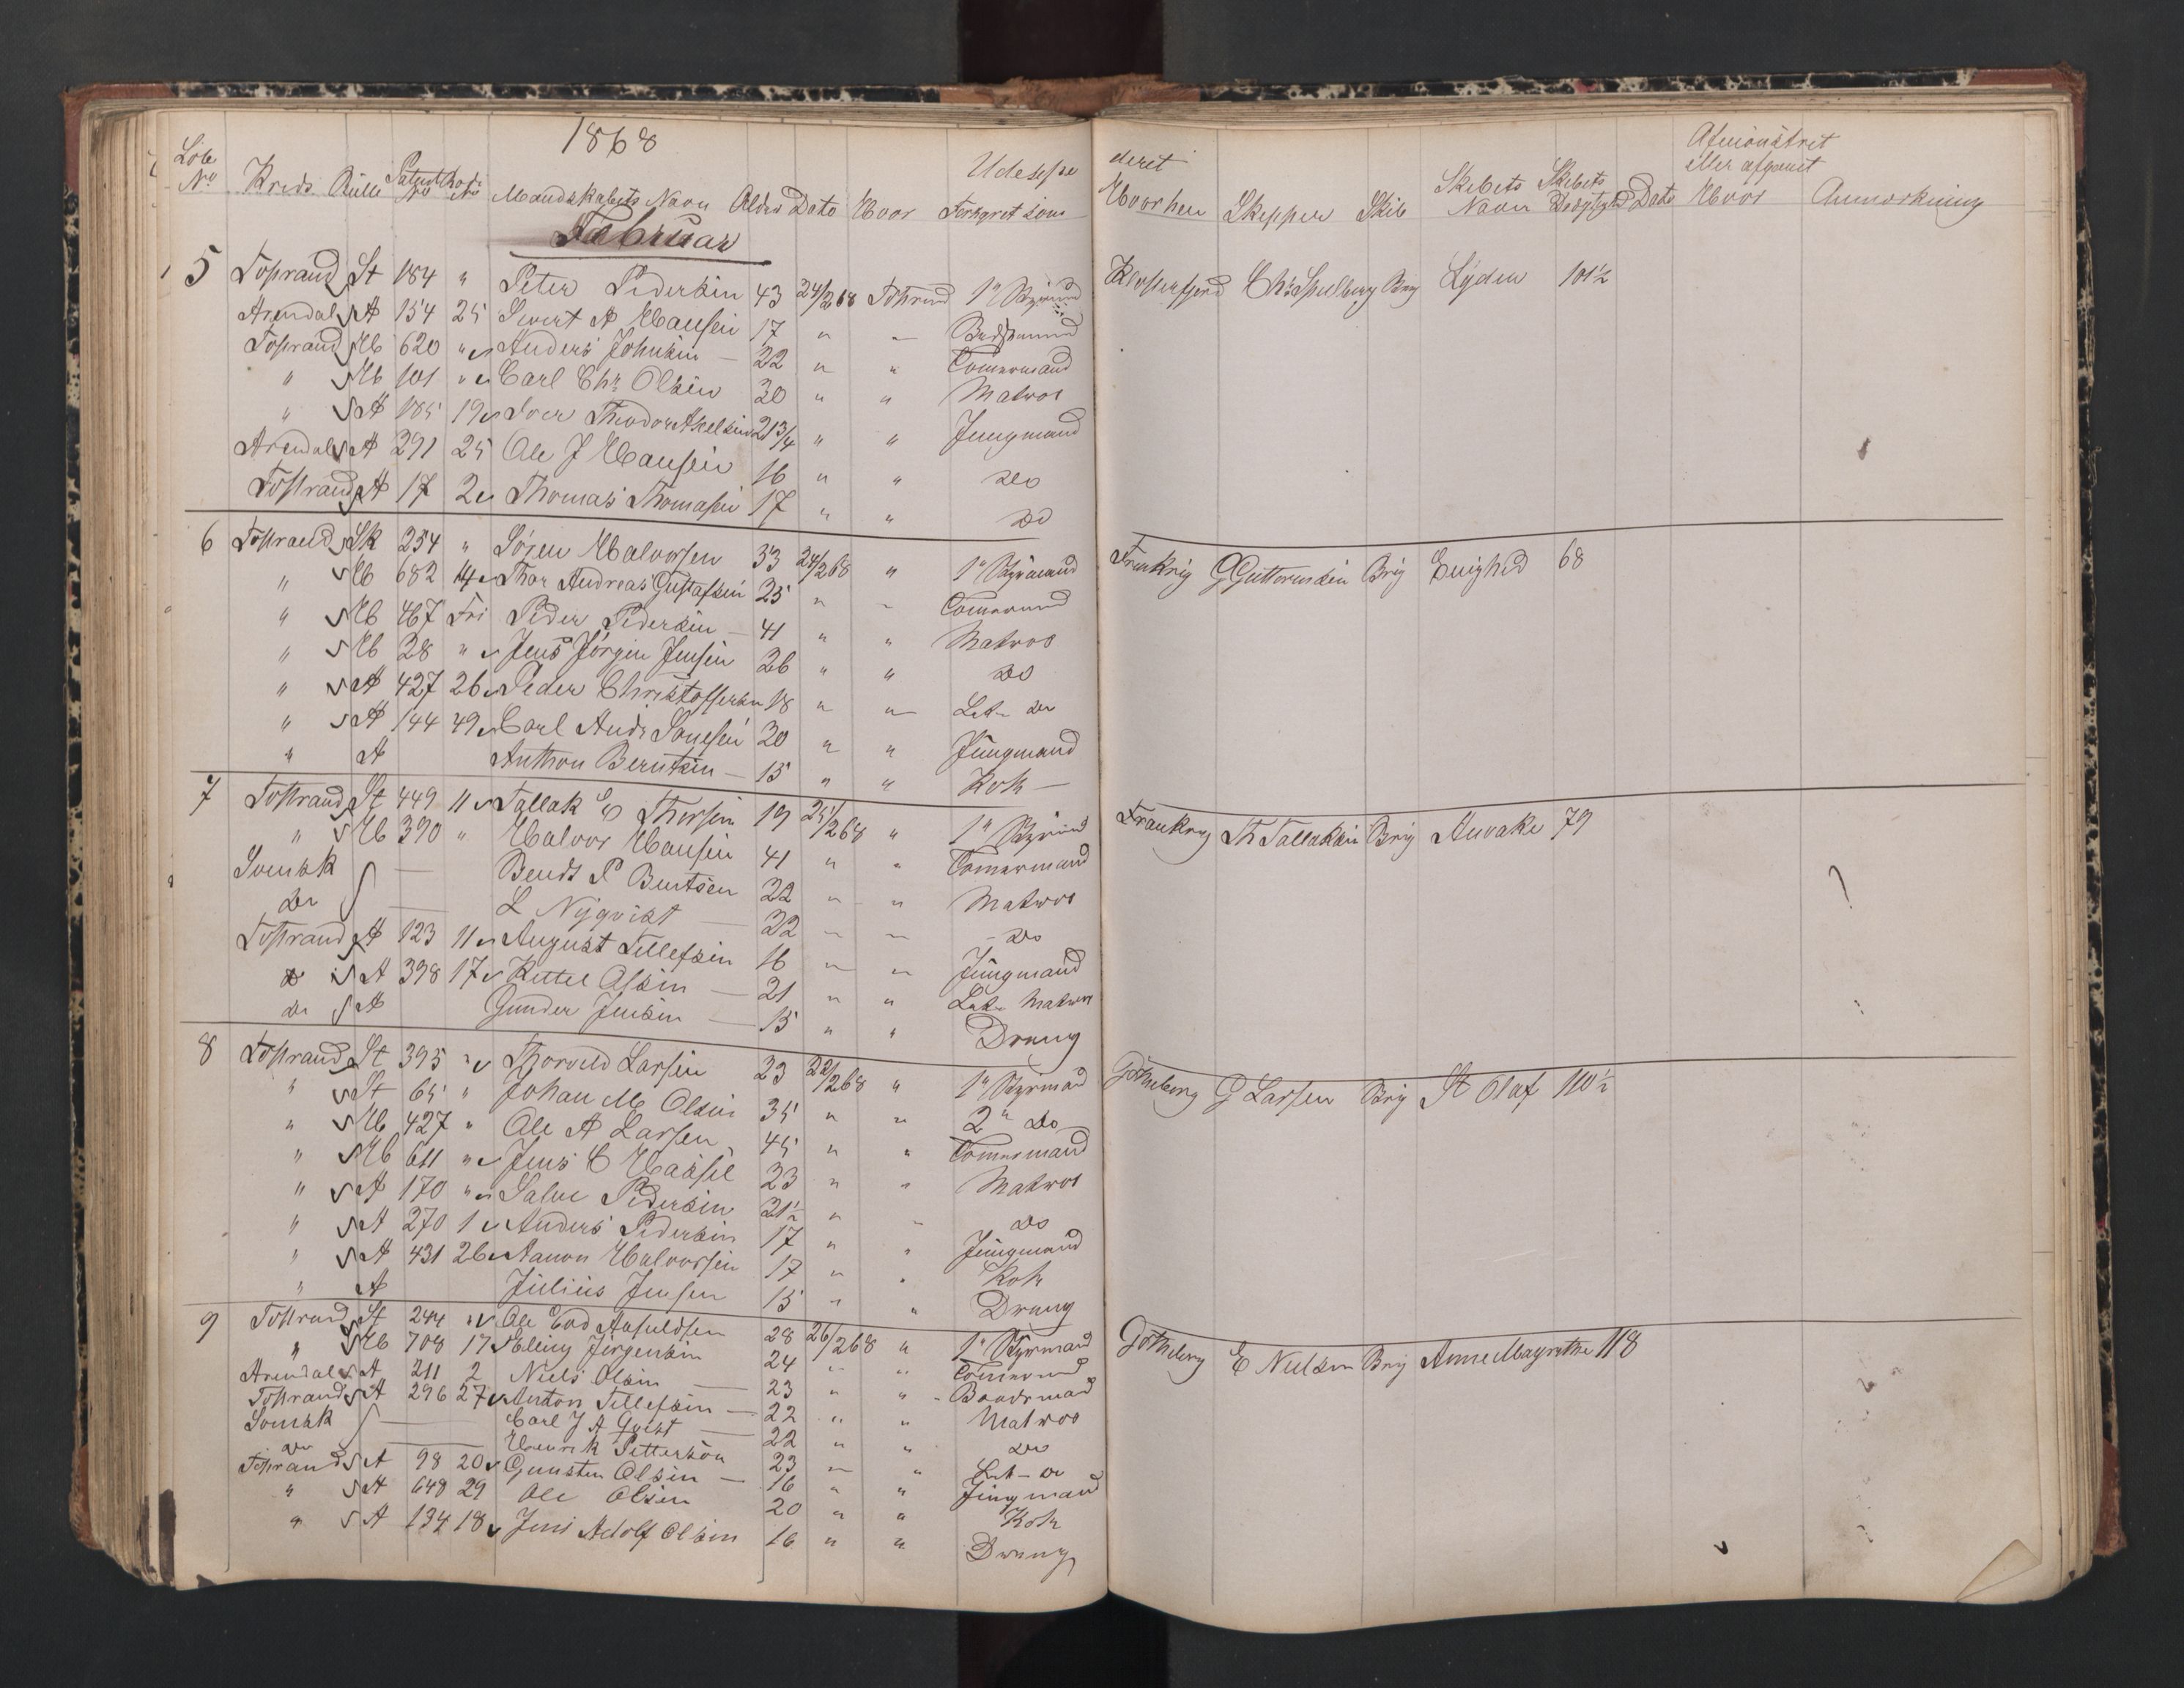 1868
Löbe No Kreds Rulle Patent No Rode No Mandskabets Navn Alder Dato Hvor Forhyret som Hvorhen Skipper Skib Skibets Navn Skibets Drægtighed Dato Hvor Anmærkning
Udesse deret Afmönstret eller afgaaet
Februar
5 Tvstrand St 184 " Peter Pedersen 43 24/2 68 Tvstrand 1n Styrmand Christ Brig Lyden 101½
Arendal A 154 25 Sivert A Hansen 17 " "
Tvstrand Hb 620 " Anders Johnsen 22 " " Tömermand
" Hb 101 " Carl Chr Olsen 30 " " Matros
" A 185 19 Iver Theodor Axelsen 21 3/4 " " Jungmand
Arendal A 291 25 Ole J Hansen 16 " " do
Tvstrand A 17 2 Thomas Thomasen 17 " " do
6 Tvstrand Sk 254 " Sören Halvorsen 33 24/2 68 " 1n Styrmand Frankrig G Guttormsen Brig Enighed 68
" Hb 682 14 Thor Andreas Gustafsen 25 " " Tömermand
" Hb 467 Fri Peder Pedersen 41 " " Matros
" Hb 28 " Jens Jörgen Jensen 26 " " do
" A 427 26 Peder Christoffersen 18 " " Let do
" A 144 49 Carl Andr 20 " " Jungmand
" A Anthon Berntsen 15 " " Kok
7 Tvstrand St 449 11 Tallak E Thorsen 19 25/2 68 " 1n Styrmand Frankrig Th Tallaksen Brig Anvake 79
" Hb 390 " Halvor Hansen 41 " " Tömermand
Svensk Bendt P Berntsen 22 " " Matros
do L Nyqvist 22 " " do
Tvstrand A 123 11 August Tellefsen 16 " " Jungmand
do A 398 17 Kittel Olsen 21 " " Let Matros
do A Gunder Jensen 15 " " Dreng
8 Tvstrand St 395 " Thorvald Larsen 23 22/2 68 " 1n Styrmand Götheborg G Larsen Brig St Olaf 110½
" St 65 " Johan M Olsen 35 " " 2n do
" Hb 427 " Ole A Larsen 45 " " Tömermand
" Hb 611 " Jens C 23 " " Matros
" A 170 " Salve Pedersen 21½ " " do
" A 270 1 Anders Pedersen 17 " " Jungmand
" A 431 26 Aanon Halvorsen 17 " " Kok
" A Julius Jensen 15 " " Dreng
9 Tvstrand St 244 " Ole Evd Anfeldsen 28 26/2 68 " 1n Styrmand Götheborg E Nielsen Brig Anne Magrethe 118
" Hb 708 17 Elling Jörgensen 24 " " Tömermand
Arendal A 211 2 Niels Olsen 23 " " Baadsmand
Tvstrand A 296 27 Anton Tellefsen 22 " " Matros
Svensk Carl J A Qvist 22 " " do
do Henrik Petterson 23 " " Let do
Tvstrand A 98 20 Gunsten Olsen 16 " " Jungmand
" A 648 29 Ole Olsen 20 " " Kok
" A 134 18 Jens Adolf Olsen 16 " " Dreng